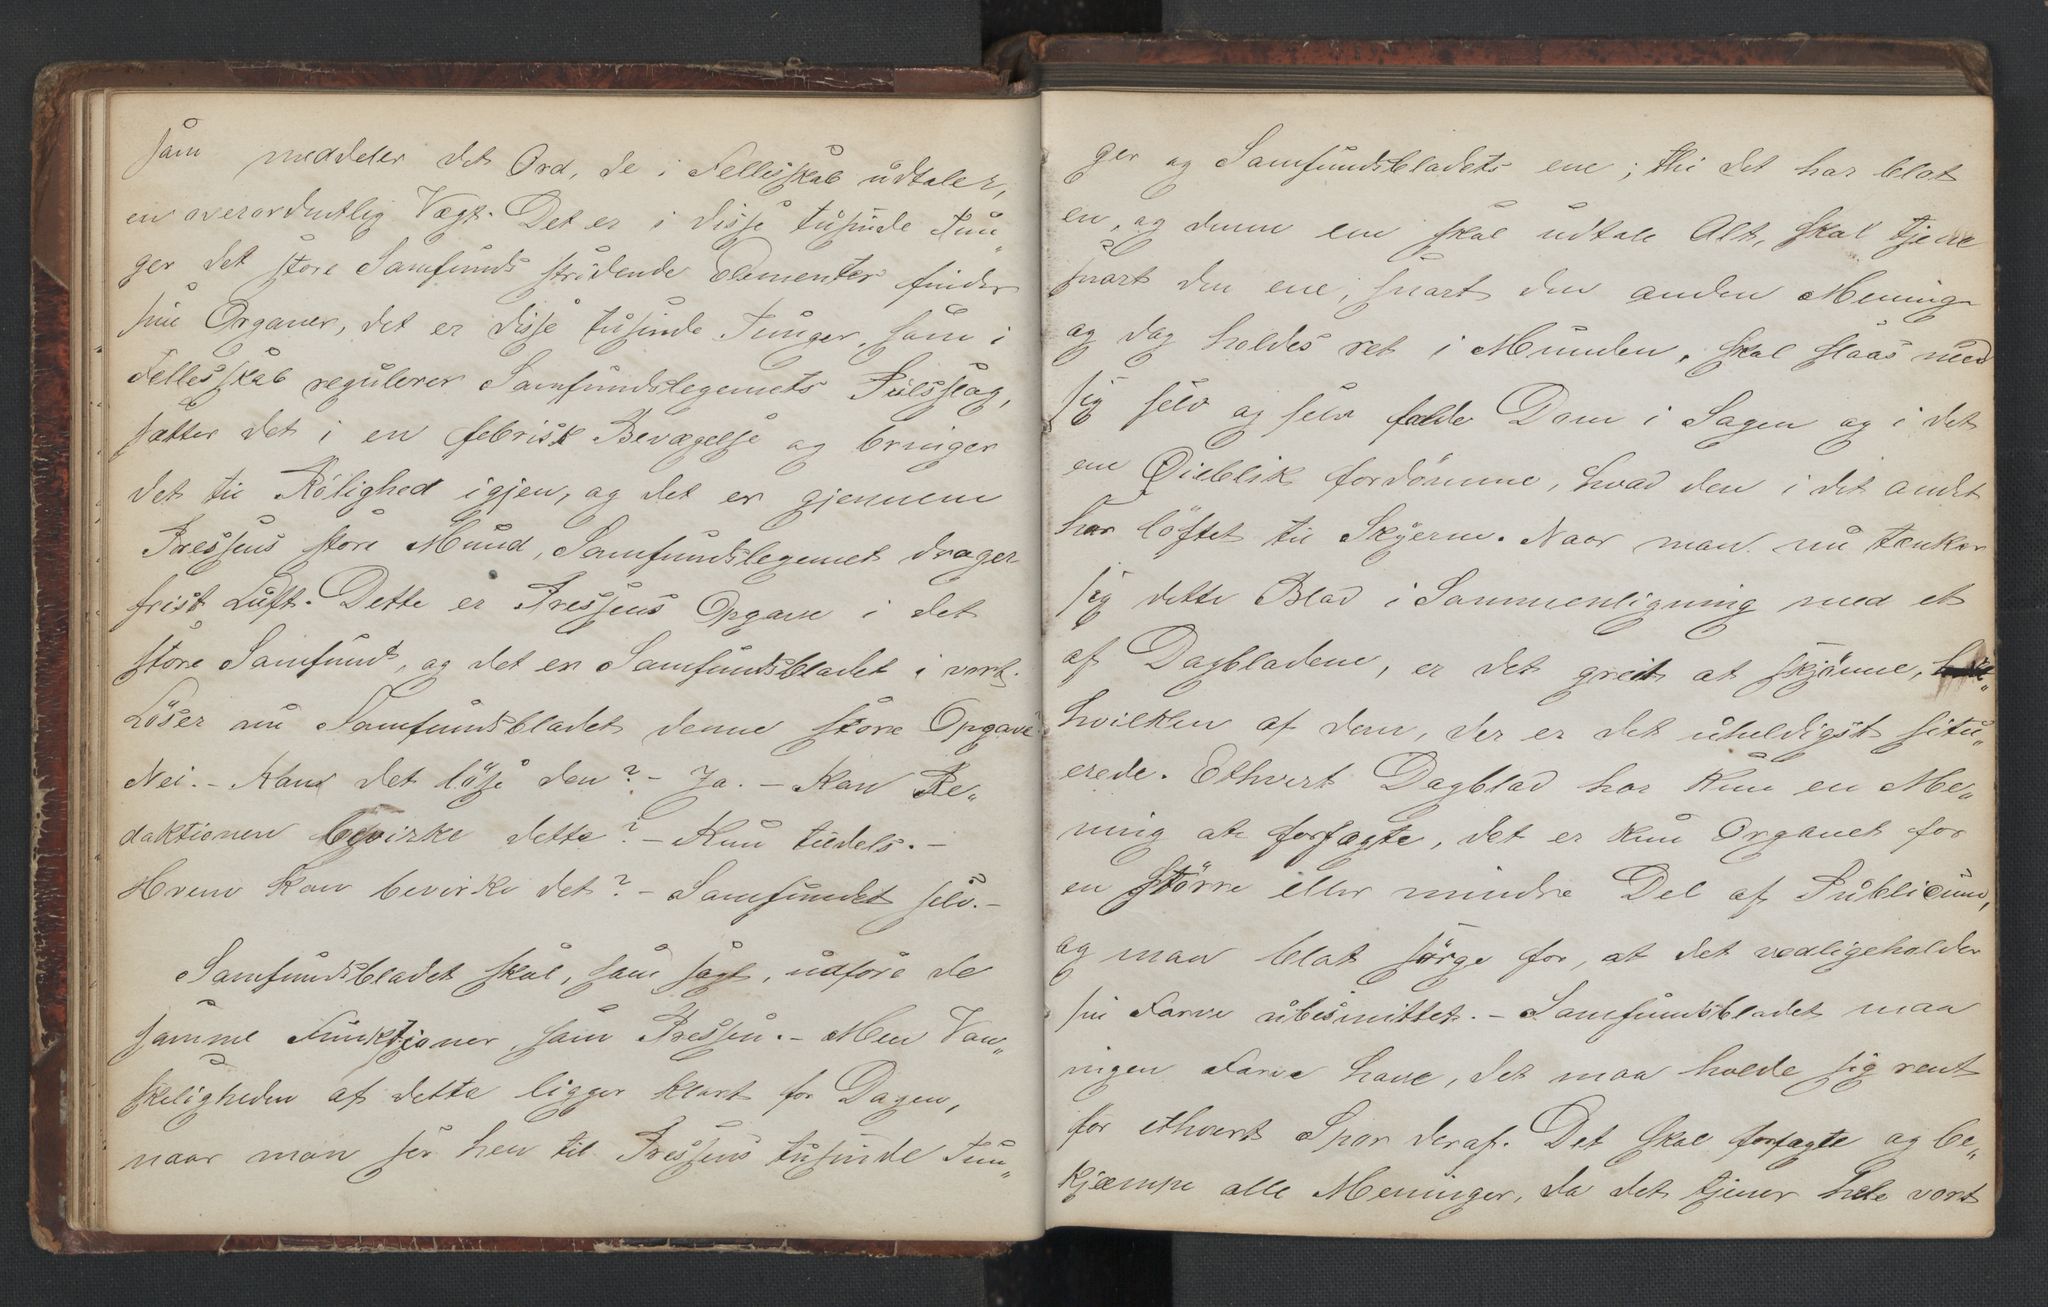 som meddeler det Ord, de i Fellesskab udtaler,
en overordentlig Vægt. Det er i disse tusinde Tun„
ger det store Samfunds stridende Elementer finder
sine Organer, det er disse tusinde Tunger, som i
Fellesskab regulerer Samfundslegemets Pulsslag,
sætter det i en febrisk Bevægelse og bringer
det til Rolighed igjen, og det er gjennem
Pressens store Mund, Samfundslegemet drager
frisk Luft. Dette er Pressens Opgave i det
store Samfund, og det er Samfundsbladet i vort.
Løser nu Samfundsbladet denne store Opgave
Nei. – Kan det løse den? – Ja. – Kan Re„
daktionen bevirke dette? – Kun tildels. –
Hvem kan bevirke det? – Samfundet selv. –
Samfundsbladet skal, som sagt, udføre de
samme Funktioner, som Pressen. – Men Van„
skeligheden af dette ligger klart for Dagen,
naar man ser hen til Pressens tusinde Tun„
ger og Samfundsbladets ene; thi det har blot
en, og denne ene skal udtale Alt, skal tjene
snart den ene, snart den anden Mening
og dog holdes ret i Munden, skal slaas med
sig selv og selv fælde Dom i Sagen og i det
ene Øieblik fordømme, hvad den i det andet
har löftet til Skyerne. Naar man nu tænker
sig dette Blad i Sammenligning med et
af Dagbladene, er det greit at skjønne,
hvilken af dem, der er det uheldigst situ„
erede. Ethvert Dagblad har kun en Me„
ning at forfægte, det er kun Organet for
en större eller mindre Del af Publicum,
og man blot sørge for, at det vedligeholder
sin Farve ubesmittet. – Samfundsbladet maa
ingen Farve have, det maa holde sig rent
for ethvert Spor deraf. Det skal forfægte og be„
kjæmpe alle Meninger, da det tjener hele vort